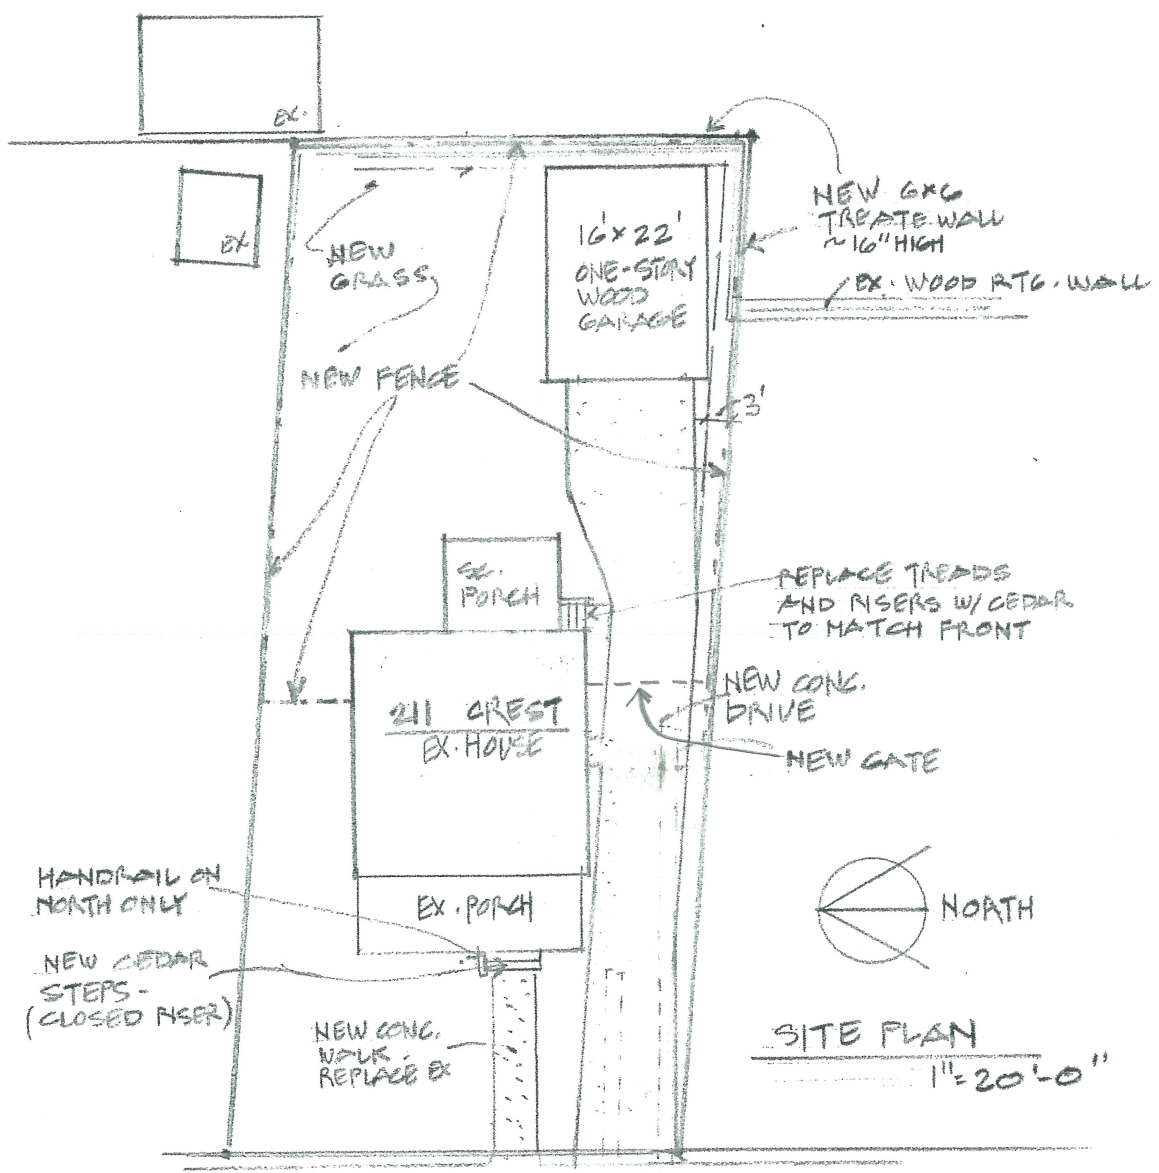 EX.
EX
NEW
GRASS
16'X22'
ONE-STORY
WOOD
GARAGE
NEW 6X6
TREATE WALL
~16" HIGH
EX. WOOD RTG. WALL
NEW FENCE
3'
SC.
PORCH
REPLACE TREADS
AND RISERS W/ CEDAR
TO MATCH FRONT
211 CREST
EX. HOUSE
NEW CONC.
DRIVE
NEW GATE
HANDRAIL ON
NORTH ONLY
EX. PORCH
NORTH
NEW CEDAR
STEPS -
(CLOSED RISER)
NEW CONC.
WALK -
REPLACE EX
SITE PLAN
1"=20'-0"